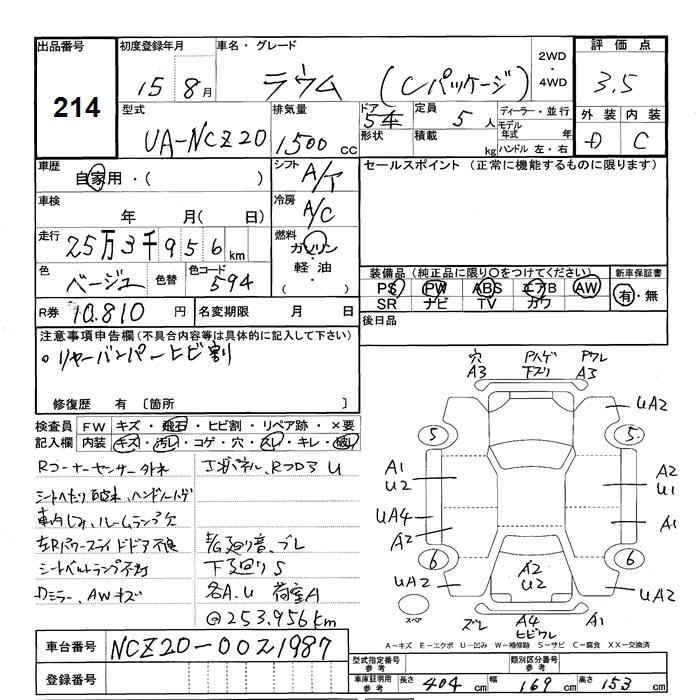 出品番号 初度登録年月 車名・グレード 2WD・4WD 評価点
214 15 8月 ラウム (Cパッケージ) 3.5
型式 排気量 ドア形状 定員 積載 ディーラー・並行 モデル年式 年 ハンドル 左・右 外装 内装
UA-NCZ20 1500 CC 5 5人 kg D C
車歴 自家用・( ) シフト A/T セールスポイント (正常に機能するものに限ります)
車検 年 月(日) 冷房 A/C
走行 25万3千956km 燃料 ガソリン・軽油・( )
色 ベージュ 色替 色コード 594
装備品 (純正品に限り○をつけてください) 新車保証書
PS PW ABS エアB AW 有・無
SR ナビ TV カワ
R券 10,810円 名変期限 月 日 後日品
注意事項申告欄 (不具合内容等は具体的に記入して下さい)
○リヤーバンパーヒビ割
修復歴 有 〔箇所 〕
検査員記入欄 FW キズ・飛石・ヒビ割・リペア跡・×要
内装 キズ・汚レ・コゲ・穴・スレ・キレ・破レ
Rコーナーセンサー外れ
シートへたり
車内しみ、ルームランプ欠
左Rパワースライドドア不良
シートベルトランプ不灯
Dミラー、AWキズ
U
廻り音、ブレ
下廻りS
各A.U 荷室A
@253,956km
穴 A3
ハゲ 下ズリ
ワレ A3
UA2
5 5
A1 U2
A2 U1
UA4 A2
A1
6 6
UA2 A2 U2 UA2
スペア ズレ A4 ヒビワレ A1
A-キズ E-エクボ U-凹み W-補修跡 S-サビ C-腐食 XX-交換済
車台番号 NCZ20-0021987
登録番号
型式指定番号 参考 類別区分番号 参考
車庫証明用 参考 長さ 404cm 幅 169cm 高さ 153cm